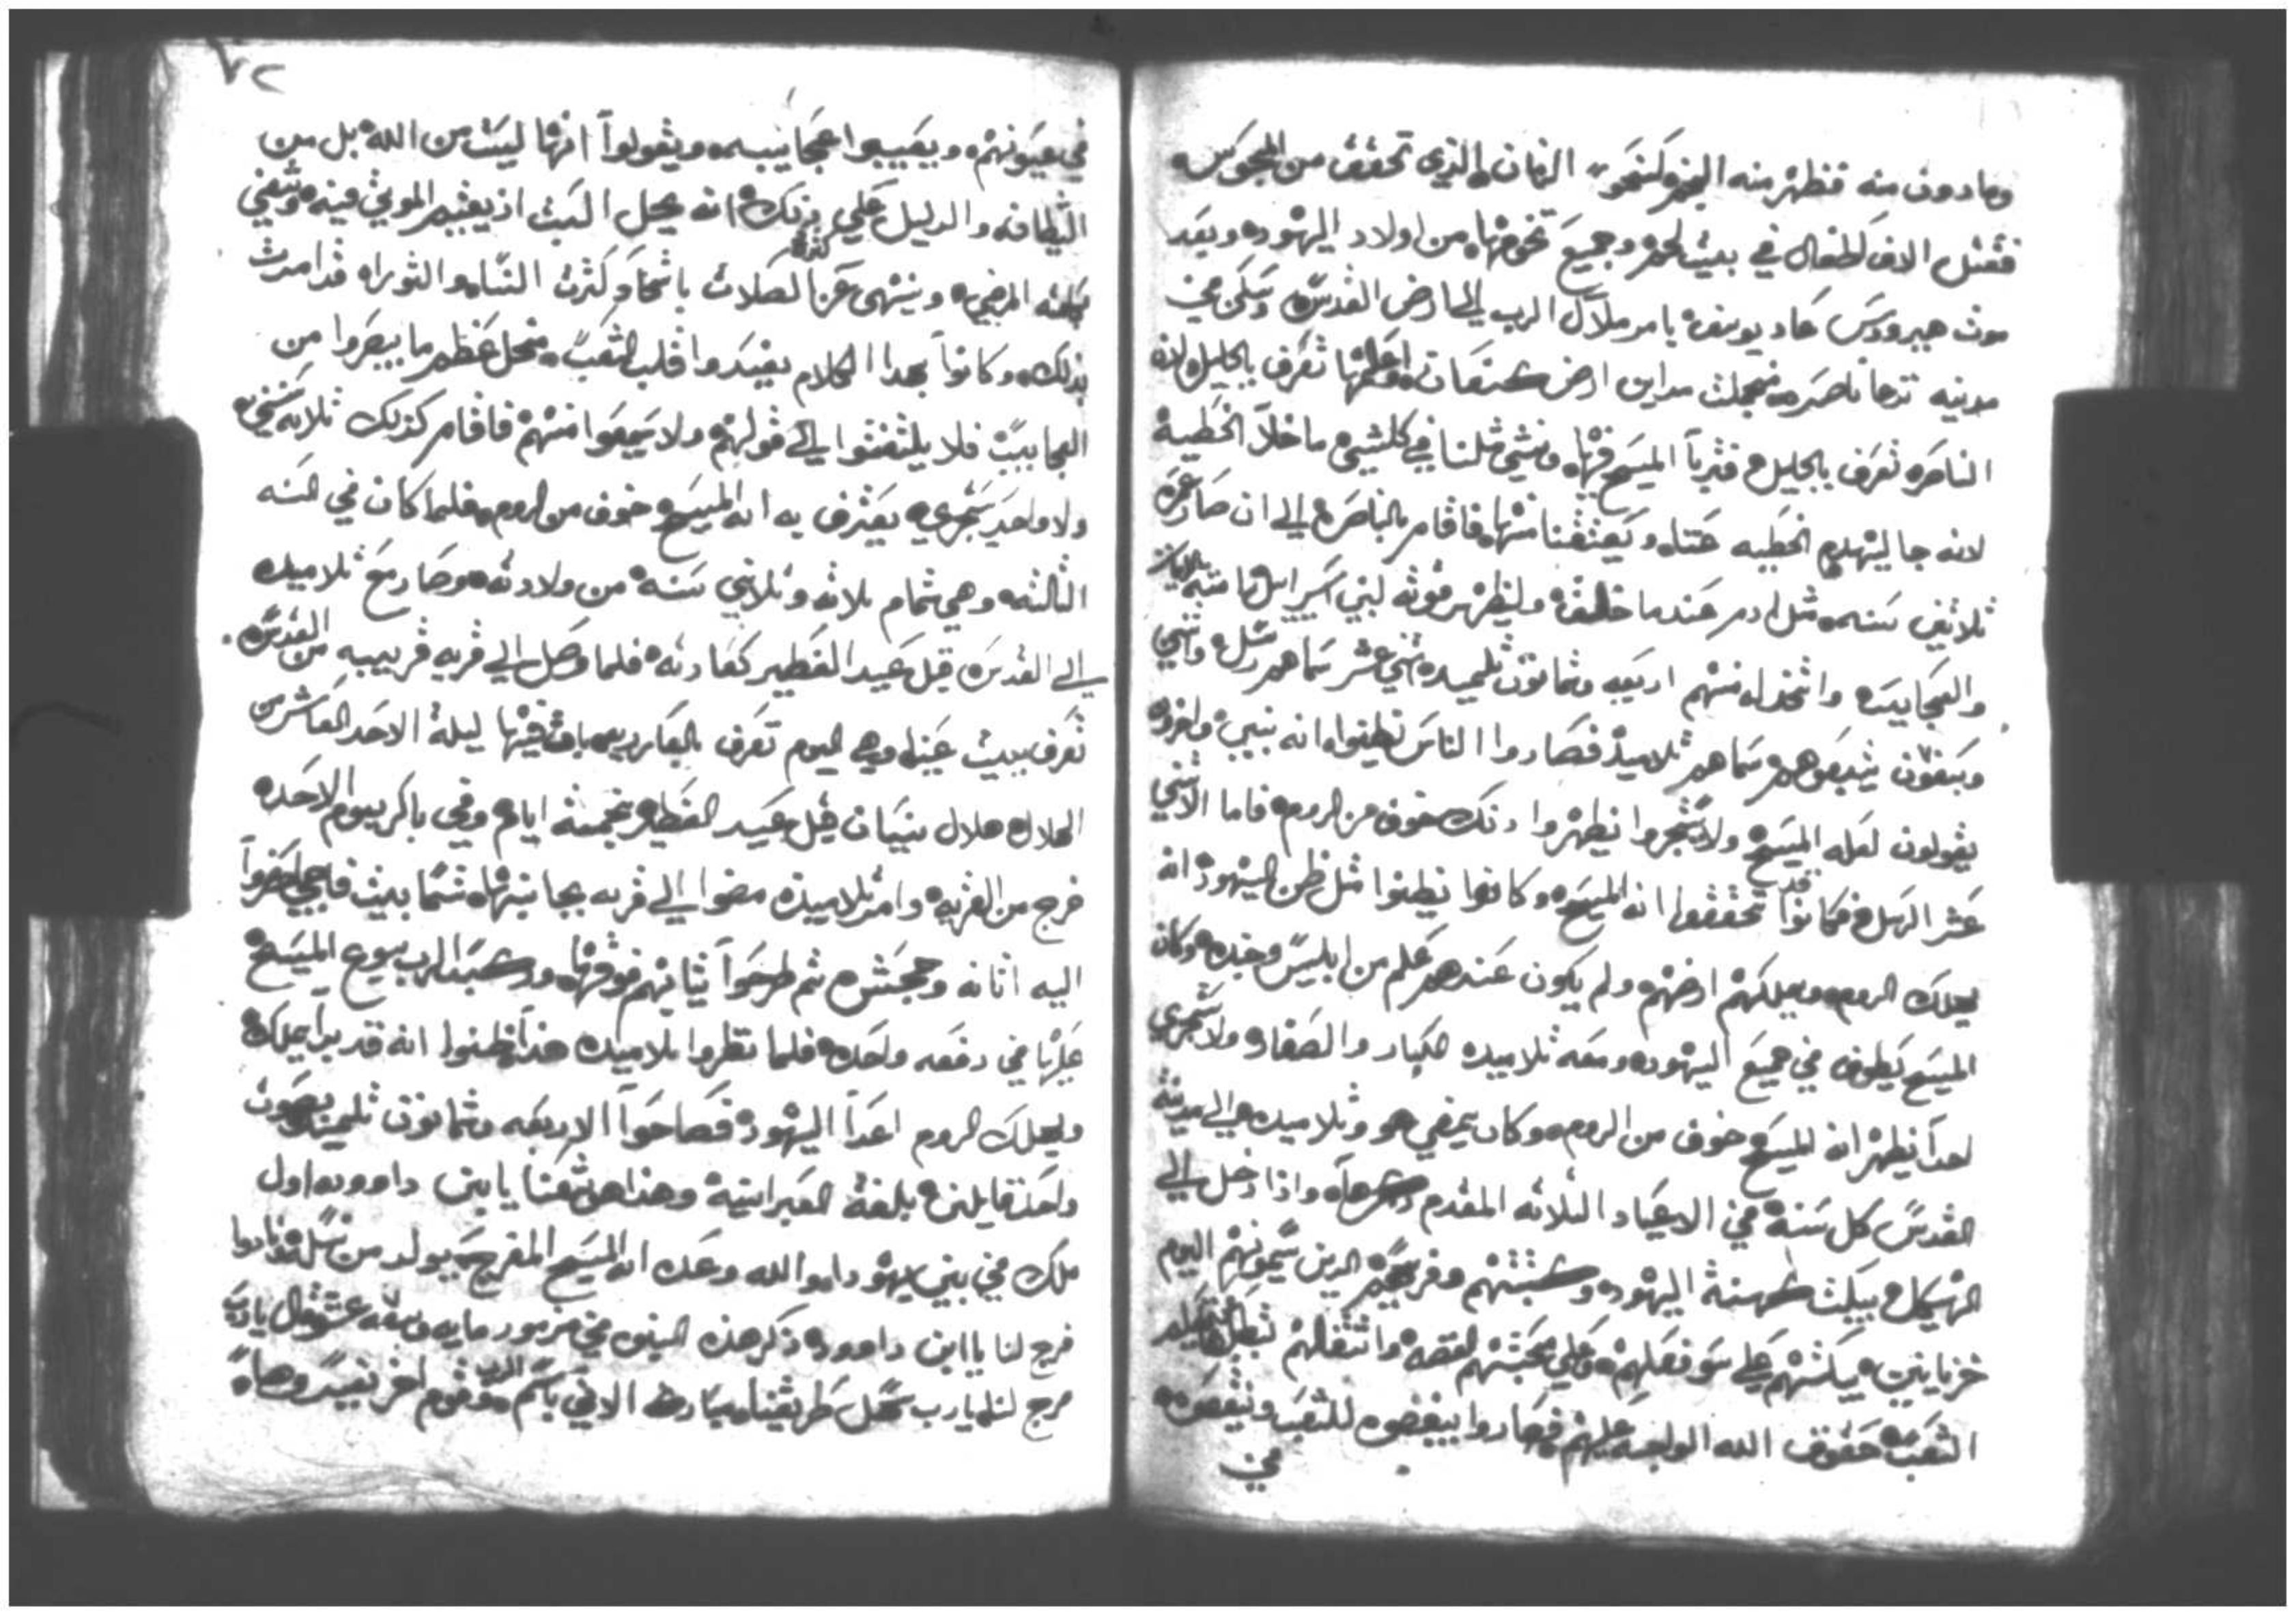 وما دون منه فظهر منه النجم كنحو الزمان الذي تحقق من المجوس
فقتل الاف اطفال في بيت لحم وجميع تخومها من اولاد اليهود وبعد
موت هيرودس عاد يوسف بامر ملاك الرب الي ارض القدس وسكن في
مدينه تدعا ناصره من مداين ارض كنعان تعرف بالجليل لان
الناصره تعرف بالجليل فتربا المسيح فيها ومشي مثلنا في كلشي ما خلا الخطية
لانه جا ليهدم الخطيه عنا ويعتقنا منها فاقام بالناصره الي ان صار عمره
ثلاثين سنه مثل ادم عندما خلقه وليظهر قوته لبني اسراييل
والعجايب واتخذ له منهم اربعه وثمانون تلميد اثني عشر سماهم رسل واثني
وسبعون يتبعوهم سماهم تلاميد فصاروا الناس يظنوا انه نبي واخرون
يقولون لعله المسيح ولا يتجروا يظهروا دلك خوف من الروم فاما الاثني
عشر الرسل فكانوا قد تحققوا انه المسيح وكانوا يظنوا مثل ظن اليهود انه
يهلك الروم ويملكهم ارضهم ولم يكون عندهم علم من ابليس وجنده وكان
المسيح يطوف في جميع اليهود ومعه تلاميده الكبار والصغار ولا يتجري
احدا يظهر انه المسيح خوف من الروم وكان يمضي هو وتلاميده الي مدينة
القدس كل سنة في الاعياد الثلاثه المقدم دكرها واذا دخل الي
الهيكل يبكت كهنة اليهود وكتبتهم وفريسيهم الدين يسمونهم اليوم
خزبانين يبكتهم علي سو فعلهم وعلي محبتهم الفضه
الشعب حقوق الله الواجبه عليهم فصاروا يبغضوه للشعب وينقصوه
في
٧٢
في عيونهم ويعيبوا عجايبه ويقولوا انها ليست من الله بل من
الشيطان والدليل علي دلك انه يحل السبت اذ يقيم الموتي فيه ويشفي
بكلمته المرضي وينهي عن الصلاة باسحاو كثرة النساء والتوراه قد امرت
بذلك وكانوا بهدا الكلام يفسدوا قلب الشعب من اجل عظم ما يبصروا من
العجايب فلا يلتفتوا الي قولهم ولا يسمعوا منهم فاقام كذلك ثلاثه سنين
ولا واحد يتجري يعترف به انه المسيح خوف من الروم فلما كان في السنه
الثالثه وهي تمام ثلاثه وثلاثين سنة من ولادته وصار مع تلاميده
الي القدس قبل عيد الفطير كعادته فلما وصل الي قريه قريبه من القدس
تعرف ببيت عنيا وهي اليوم تعرف بالعازريه بات فيها ليلة الاحد العاشر من
الهلال هلال نيسان قبل عيد الفطير بخمسة ايام وفي باكر يوم الاحد
خرج من القريه وامر تلاميده مضوا الي قريه بجانبها تسما بيت فاجي احضروا
اليه اتانه وجحش ثم طرحوا ثيابهم فوقها وركب الرب يسوع المسيح
عليها في دفعه واحده فلما نظروا تلاميده هذا ظنوا انه قد بدا يملك
ويهلك الروم اعدا اليهود فصاحوا الاربعه وثمانون تلميد بصوت
واحد قايلين بلغة العبرانية وهذا اوشعنا يا ابن داوود اول
ملك في بني يهودا هو الله وعده ان المسيح المفرج يولد من نسله نادوا
فرج لنا يا ابن داوود ذكر هذه النبوه في مزمور مايه وسبعه عشر قال يارب
فرج لنا يارب سهل طريقنا مبارك الاتي باسم الرب وقوم اخر نفسروها